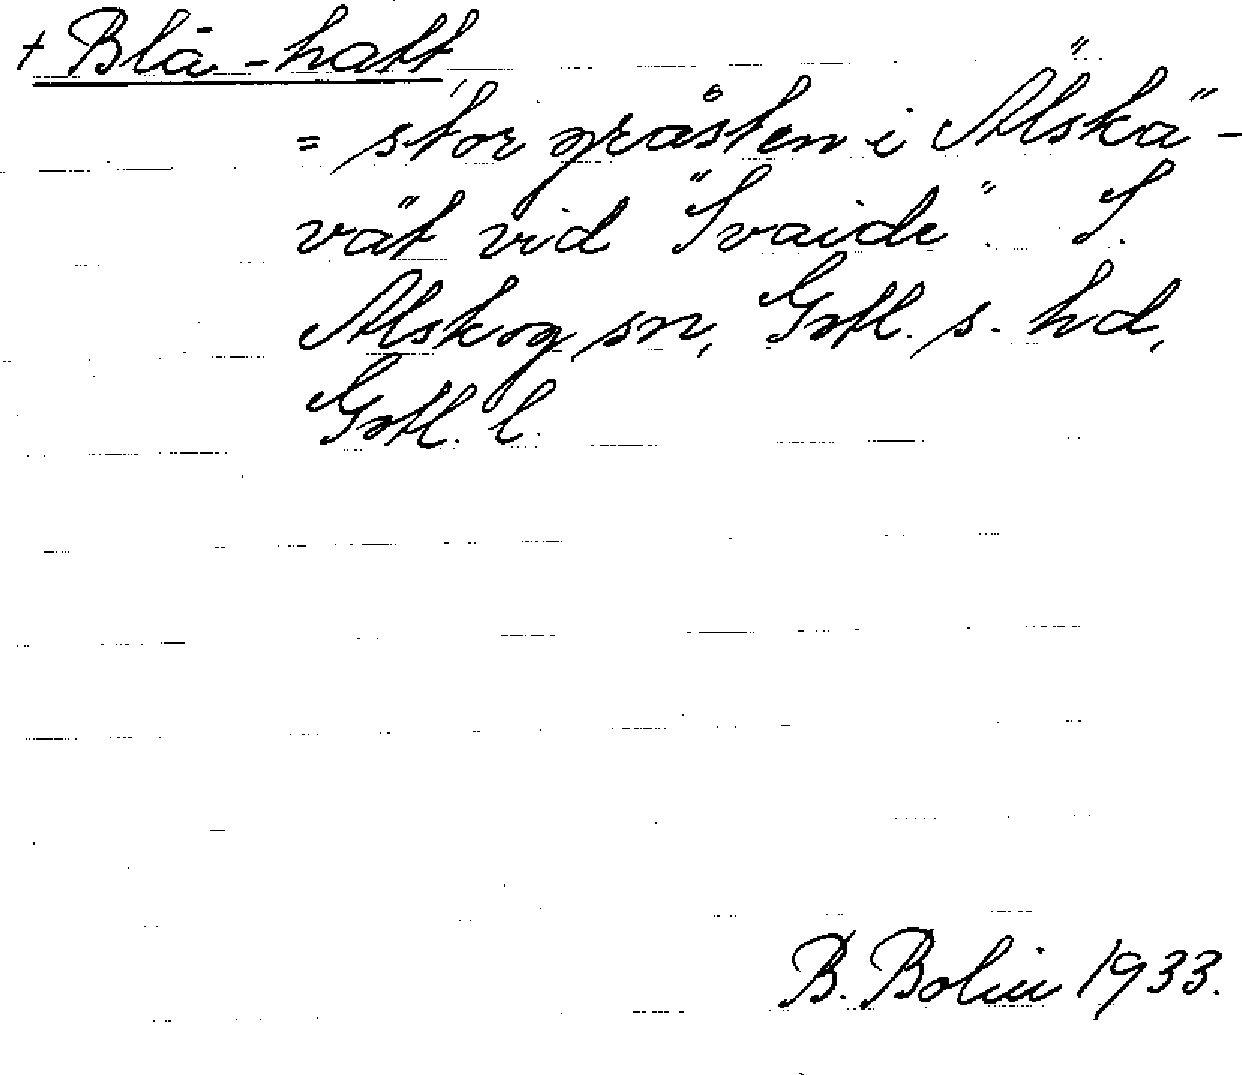 + Blā-hatt
= stor gråsten i Älskä-
vät vid "Svaide". S.
Alskog sn, Gotl. s. hd,
Gotl. l.
B. Bolin 1933.